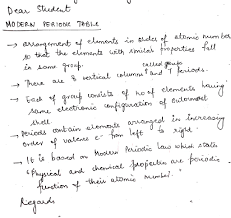 Dear Student
MODERN PERIODIC TABLE
→ Arrangement of elements in order of atomic number
so that the elements with similar properties fall
in same group.
called groups
→ There are 8 vertical columns and 7 periods.
→ Each of group consists of no of elements having
same electronic configuration of outermost
shell.
→ Periods contain elements arranged in increasing
order of valence e- from left to right.
→ It is based on Modern Periodic Law which states
"Physical and chemical properties are periodic
function of their atomic number."
Regards